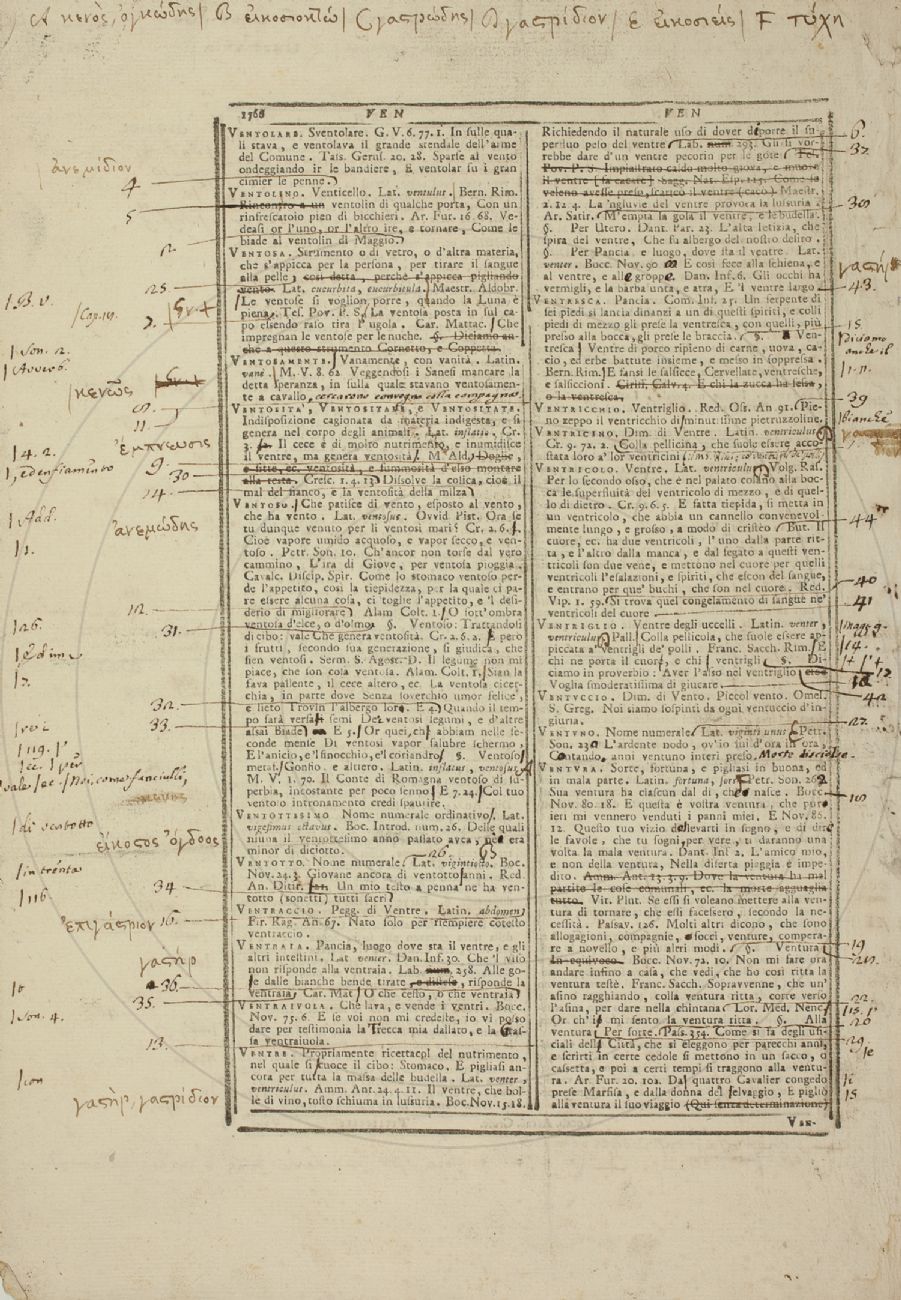 A κενὸς, ὀγκώδης | B εἰκοσιοκτὼ | C γαστρώδης | D γαστρίδιον | E εἰκοσιεῖς | F τύχη
1768 VEN VEN
VENTOLARE. Sventolare. G. V. 6. 77. 1. In sulle qua-
li stava, e ventolava il grande stendale dell'arme
del Comune. Tass. Gerus. 20. 28. Sparse al vento
ondeggiando ir le bandiere, E ventolar su i gran
cimier le penne.
ἀνεμίδιον
4
VENTOLINO. Venticello. Lat. ventulus. Bern. Rim.
Rincontro a un ventolin di qualche porta, Con un
rinfrescatoio pien di bicchieri. Ar. Fur. 16. 68. Ve-
deasi or l'uno, or l'altro ire, e tornare, Come le
biade al ventolin di Maggio.
5
VENTOSA. Strumento o di vetro, o d'altra materia,
che s'appicca per la persona, per tirare il sangue
alla pelle; così detta, perchè s'appicca pigliando
vento. Lat. cucurbita, cucurbitula. Maestr. Aldobr.
Le ventose si voglion porre, quando la Luna è
piena. Tes. Pov. P. S. La ventosa posta in sul ca-
po essendo raso tira l'ugola. Car. Mattac. Che
impregnan le ventose per le nuche. §. Diciamo an-
che a questo strumento Cornetto, e Coppetta.
25
VENTOSAMENTE. Vanamente, con vanità. Latin.
vane. M. V. 8. 62. Veggendosi i Sanesi mancare la
detta speranza, in sulla quale stavano ventosamen-
te a cavallo, cercarono convegno colla compagna.
κενῶς
VENTOSITÀ, VENTOSITADE, e VENTOSITATE.
Indisposizione cagionata da materia indigesta, e si
genera nel corpo degli animali. Lat. inflatio. Cr.
3. Il cece è di molto nutrimento, e inumidisce
il ventre, ma genera ventosità. M. Ald. Doglie,
e fitte, ec. ventosità, e fummosità d'esso montare
alla testa. Cresc. 1. 4. 13. Dissolve la colica, cioè il
mal del fianco, e la ventosità della milza.
11
ἐμπνευσις
9.
30
24.
VENTOSO. Che patisce di vento, esposto al vento,
che ha vento. Lat. ventosus. Ovvid. Pist. Ora se
tu dunque venuto per li ventosi mari? Cr. 2. 6.
Cioè vapore umido acquoso, e vapor secco, e ven-
toso. Petr. Son. 10. Ch'ancor non torse dal vero
cammino, L'ira di Giove, per ventosa pioggia.
Cavalc. Discip. Spir. Come lo stomaco ventoso per-
de l'appetito, così la tiepidezza, per la quale ci pa-
re essere alcuna cosa, ci toglie l'appetito, e 'l desi-
derio di migliorare. Alam. Colt. 1. O sott'ombra
ventosa d'elce, o d'olmo. §. Ventoso: Trattandosi
di cibo: vale Che genera ventosità. Cr. 2. 6. 2. E però
i frutti, secondo sua generazione, si giudica, che
sien ventosi. Serm. S. Agost. D. Il legume non mi
piace, che son cosa ventosa. Alam. Colt. 1. Sian la
fava pallente, il cece altero, ec. La ventosa cicer-
chia, in parte dove Senza soverchio umor felice,
e lieto Trovin l'albergo lor. E 4. Quando il tem-
po sarà versa i semi De' ventosi legumi, e d'altre
assai Biade. E 5. Or quei, ch'abbiam nelle se-
conde mense Di ventosi vapor salubre schermo,
E l'anicio, e 'l finocchio, e 'l coriandro. §. Ventoso
metaf. Gonfio. e altero. Latin. inflatus, ventosus.
M. V. 1. 70. Il Conte di Romagna ventoso di su-
perbia, incostante per poco senno. E 7. 24. Col tuo
ventoso intronamento credi spaurire.
ἀνεμώδης
12.
31.
32.
33.
VENTOTTESIMO. Nome numerale ordinativo. Lat.
vigesimus octavus. Boc. Introd. num. 26. Delle quali
niuna il ventottesimo anno passato avea, nè era
minor di diciotto.
εἰκοσὸς ὄγδοος
26.
VENTOTTO. Nome numerale. Lat. vigintiocto. Boc.
Nov. 24. 3. Giovane ancora di ventotto anni. Red.
An. Ditir. Un mio testo a penna ne ha ven-
totto (sonetti) tutti sacri.
34
VENTRACCIO. Pegg. di Ventre. Latin. abdomen.
Fir. Rag. An. 67. Nato solo per riempiere cotesto
ventraccio.
ἐπιγάστριον
16.
VENTRAIA. Pancia, luogo dove sta il ventre, e gli
altri intestini. Lat. venter. Dan. Inf. 30. Che 'l viso
non risponde alla ventraia. Lab. num. 258. Alle go-
te dalle bianche bende tirate, e distese, risponde la
ventraia. Car. Mat. O che cesto, o che ventraia.
γαστὴρ
36.
VENTRAIUOLA. Che lava, e vende i ventri. Bocc.
Nov. 75. 6. E se voi non mi credeste, io vi posso
dare per testimonia la Trecca mia dallato, e la Gras-
sa ventraiuola.
35.
VENTRE. Propriamente ricettacol del nutrimento,
nel quale si cuoce il cibo: Stomaco. E pigliasi an-
cora per tutta la massa delle budella. Lat. venter,
ventriculus. Amm. Ant. 24. 4. 11. Il ventre, che bol-
le di vino, tosto schiuma in lussuria. Boc. Nov. 15. 18.
13.
γαστὴρ, γαστρίδιον
Richiedendo il naturale uso di dover diporre il su-
perfluo pelo del ventre. Lab. num. 293. Gli si vor-
rebbe dare d'un ventre pecorin per le gote. Tes.
Pov. P. S. Impiastrato caldo molto giova, e muove
il ventre (fa cacare) Sagg. Nat. Esp. 115. Come se
veleno avesse preso, scarico il ventre (cacò). Maestr.
2. 12. 4. La 'ngluvie del ventre provoca la lussuria.
Ar. Satir. M'empia la gola il ventre, e le budella.
§. Per Utero. Dant. Par. 23. L'alta letizia, che
spira del ventre, Che fu albergo del nostro disiro.
§. Per Pancia, e luogo, dove sta il ventre. Lat.
venter. Bocc. Nov. 90. E così fece alla schiena, e
al ventre, e alle groppe. Dan. Inf. 6. Gli occhi ha
vermigli, e la barba unta, e atra, E 'l ventre largo.
6.
37
30
43.
VENTRESCA. Pancia. Com. Inf. 25. Un serpente di
sei piedi si lancia dinanzi a un di questi spiriti, e colli
piedi di mezzo gli prese la ventresca, con quelli, più
presso alla bocca, gli prese le braccia. §. Ven-
tresca. Ventre di porco ripieno di carne, uova, ca-
cio, ed erbe battute insieme, e messo in soppressa.
Bern. Rim. E fansi le salsicce, Cervellate, ventresche,
e salsiccioni. Ciriff. Calv. 4. E chi la zucca ha fessa,
o la ventresca.
15
Diciamo
anche il
VENTRICCHIO. Ventriglio. Red. Oss. An. 91. Pie-
no zeppo il ventricchio di minutissime pietruzzoline.
39
VENTRICINO. Dim. di Ventre. Latin. ventriculus.
Cr. 9. 72. 2. Colla pellicina, che suole essere acco-
stata loro a' lor ventricini.
VENTRICOLO. Ventre. Lat. ventriculus. Volg. Ras.
Per lo secondo osso, che è nel palato colano alla boc-
ca le superfluità del ventricolo di mezzo, e di quel-
lo di dietro. Cr. 9. 6. 5. E fatta tiepida, si metta in
un ventricolo, che abbia un cannello convenevol-
mente lungo, e grosso, a modo di cristeo. But. Il
cuore, ec. ha due ventricoli, l'uno dalla parte rit-
ta, e l'altro dalla manca, e dal fegato a questi ven-
tricoli son due vene, e mettono nel cuore per quelli
ventricoli l'esalazioni, e spiriti, che escon del sangue,
e entrano per que' buchi, che son nel cuore. Red.
Vip. 1. 59. Si trova quel congelamento di sangue ne'
ventricoli del cuore.
44
40
41
VENTRIGLIO. Ventre degli uccelli. Latin. venter,
ventriculus. Pall. Colla pellicola, che suole essere ap-
piccata a' ventrigli de' polli. Franc. Sacch. Rim. E
chi ne porta il cuore, e chi i ventrigli. §. Di-
ciamo in proverbio: Aver l'asso nel ventriglio
Voglia smoderatissima di giucare.
VENTUCCIO. Dim. di Vento. Piccol vento. Omel.
S. Greg. Noi siamo sospinti da ogni ventuccio d'in-
giuria.
42
VENTUNO. Nome numerale. Lat. viginti unus. Petr.
Son. 23. L'ardente nodo, ov'io fui d'ora in ora,
Contando, anni ventuno interi preso. Morte disciolse.
27.
VENTURA. Sorte, fortuna, e pigliasi in buona, ed
in mala parte. Latin. fortuna, sors. Petr. Son. 262.
Sua ventura ha ciascun dal dì, che nasce. Bocc.
Nov. 80. 18. E questa è vostra ventura, che pur
ieri mi vennero venduti i panni miei. E Nov. 86.
12. Questo tuo vizio di levarti in sogno, e di dire
le favole, che tu sogni, per vere, ti daranno una
volta la mala ventura. Dant. Inf. 2. L'amico mio,
e non della ventura, Nella diserta piaggia è impe-
dito. Amm. Ant. 13. 3. 9. Dove la ventura ha mal
partite le cose comunali, ec. la morte agguaglia
tutto. Vit. Plut. Se essi si voleano mettere alla ven-
tura di tornare, che essi facessero, secondo la ne-
cessità. Passav. 126. Molti altri dicono, che sono
allogagioni, compagnie, e socci, venture, compera-
re a novello, e più altri modi. §. Ventura
In equivoco. Bocc. Nov. 72. 10. Non mi fare ora
andare infino a casa, che vedi, che ho così ritta la
ventura testè. Franc. Sacch. Sopravvenne, che un'
asino ragghiando, colla ventura ritta, corre verso
l'asina, per dare nella chintana. Lor. Med. Nenc.
Or ch'i' mi sento la ventura ritta. §. Alla
ventura. Per sorte. Pass. 354. Come si fa degli ufi-
ciali delle Città, che si eleggono per parecchi anni,
e scritti in certe cedole si mettono in un sacco, o
cassetta, e poi a certi tempi si traggono alla ventu-
ra. Ar. Fur. 20. 102. Dal quattro Cavalier congedo
prese Marfisa, e dalla donna del selvaggio, E pigliò
alla ventura il suo viaggio (Qui senza determinazione)
10
19
22.
20
29.
VEN-